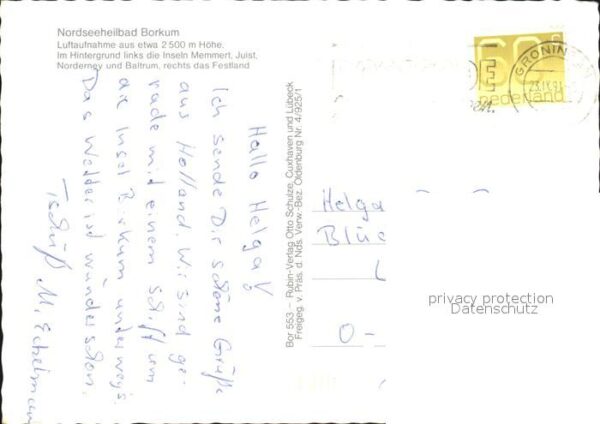 Nordseeheilbad Borkum
Luftaufnahme aus etwa 2500 m Höhe.
Im Hintergrund links die Inseln Memmert, Juist,
Norderney und Baltrum, rechts das Festland
Hallo Helga!
Ich sende Dir schöne Grüße
aus Holland. Wir sind ge-
rade mit einem Schiff um
die Insel Borkum unterwegs.
Das Wetter ist wunderschön.
Tschüß M.
Bor 553 – Rubin-Verlag Otto Schulze, Cuxhaven und Lübeck
Freigeg. v. Präs. d. Nds. Verw.-Bez. Oldenburg Nr. 4/925/1
60
nederland
GRONINGEN
Helga
Blüc
O-
privacy protection
Datenschutz